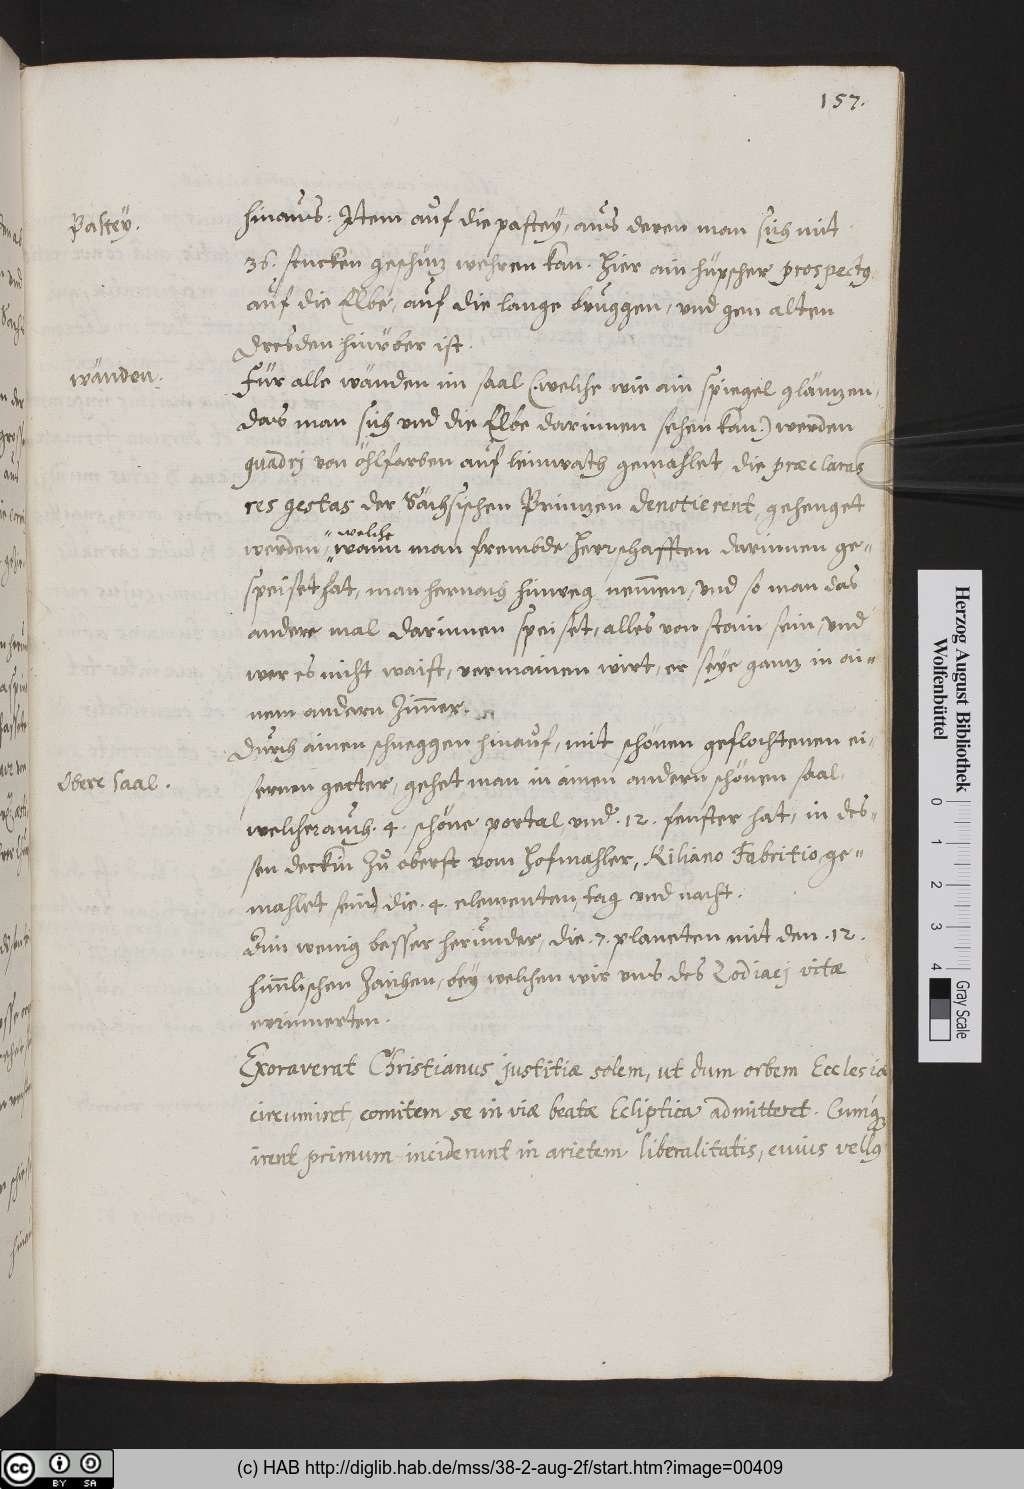 157.
Pastey.
hinaus: Item auf die pastey, aus deren man sich mit
36. stucken geschütz wehren kan. Hier ain hüpscher prospectus
auf die Elbe, auf die lange bruggen, und gen alten
Dresden hinüber ist.
wänden.
Für alle wänden im saal (welche wie ain spiegel gläntzen,
das man sich und die Elbe darinnen sehen kan:) werden
quadrj von öhlfarben auf leinwath gemahlet, die præclaras
res gestas der Sächsischen Printzen denotierent, gehenget
werden, welche
wann man frembde Herrschafften darinnen ge=
speiset hat, man hernach hinweg nemmen, und so man das
andere mal darinnen speiset, alles von stain sein, und
wer es nicht waist, vermainen wirt, er seye gantz in ai=
nem andern Zimmer.
Durch ainen schneggen hinauf, mit schönen geflochtenen ei=
Obere Saal.
sernen getter, gehet man in ainen andern schönen saal,
welcher auch .4. schöne portal, und .12. fenster hat, in des=
sen deckin zu oberst vom Hofmahler, Kiliano Fabritio, ge=
mahlet seind die .4. elementen, tag und nacht.
Ain wenig besser herunder, die .7. planeten mit den .12.
himlischen Zaichen, bey welchen wir uns des Zodiacj vitæ
erinnerten.
Exoraverat Christianus justitiæ solem, ut dum orbem Ecclesiæ
circumiret, comitem se in viæ beatæ Ecliptica admitteret. Cumq
irent primum inciderunt in arietem liberalitatis, cuius vellus
Herzog August Bibliothek
Wolfenbüttel
0 1 2 3 4
Gray Scale
cc BY SA
(c) HAB http://diglib.hab.de/mss/38-2-aug-2f/start.htm?image=00409